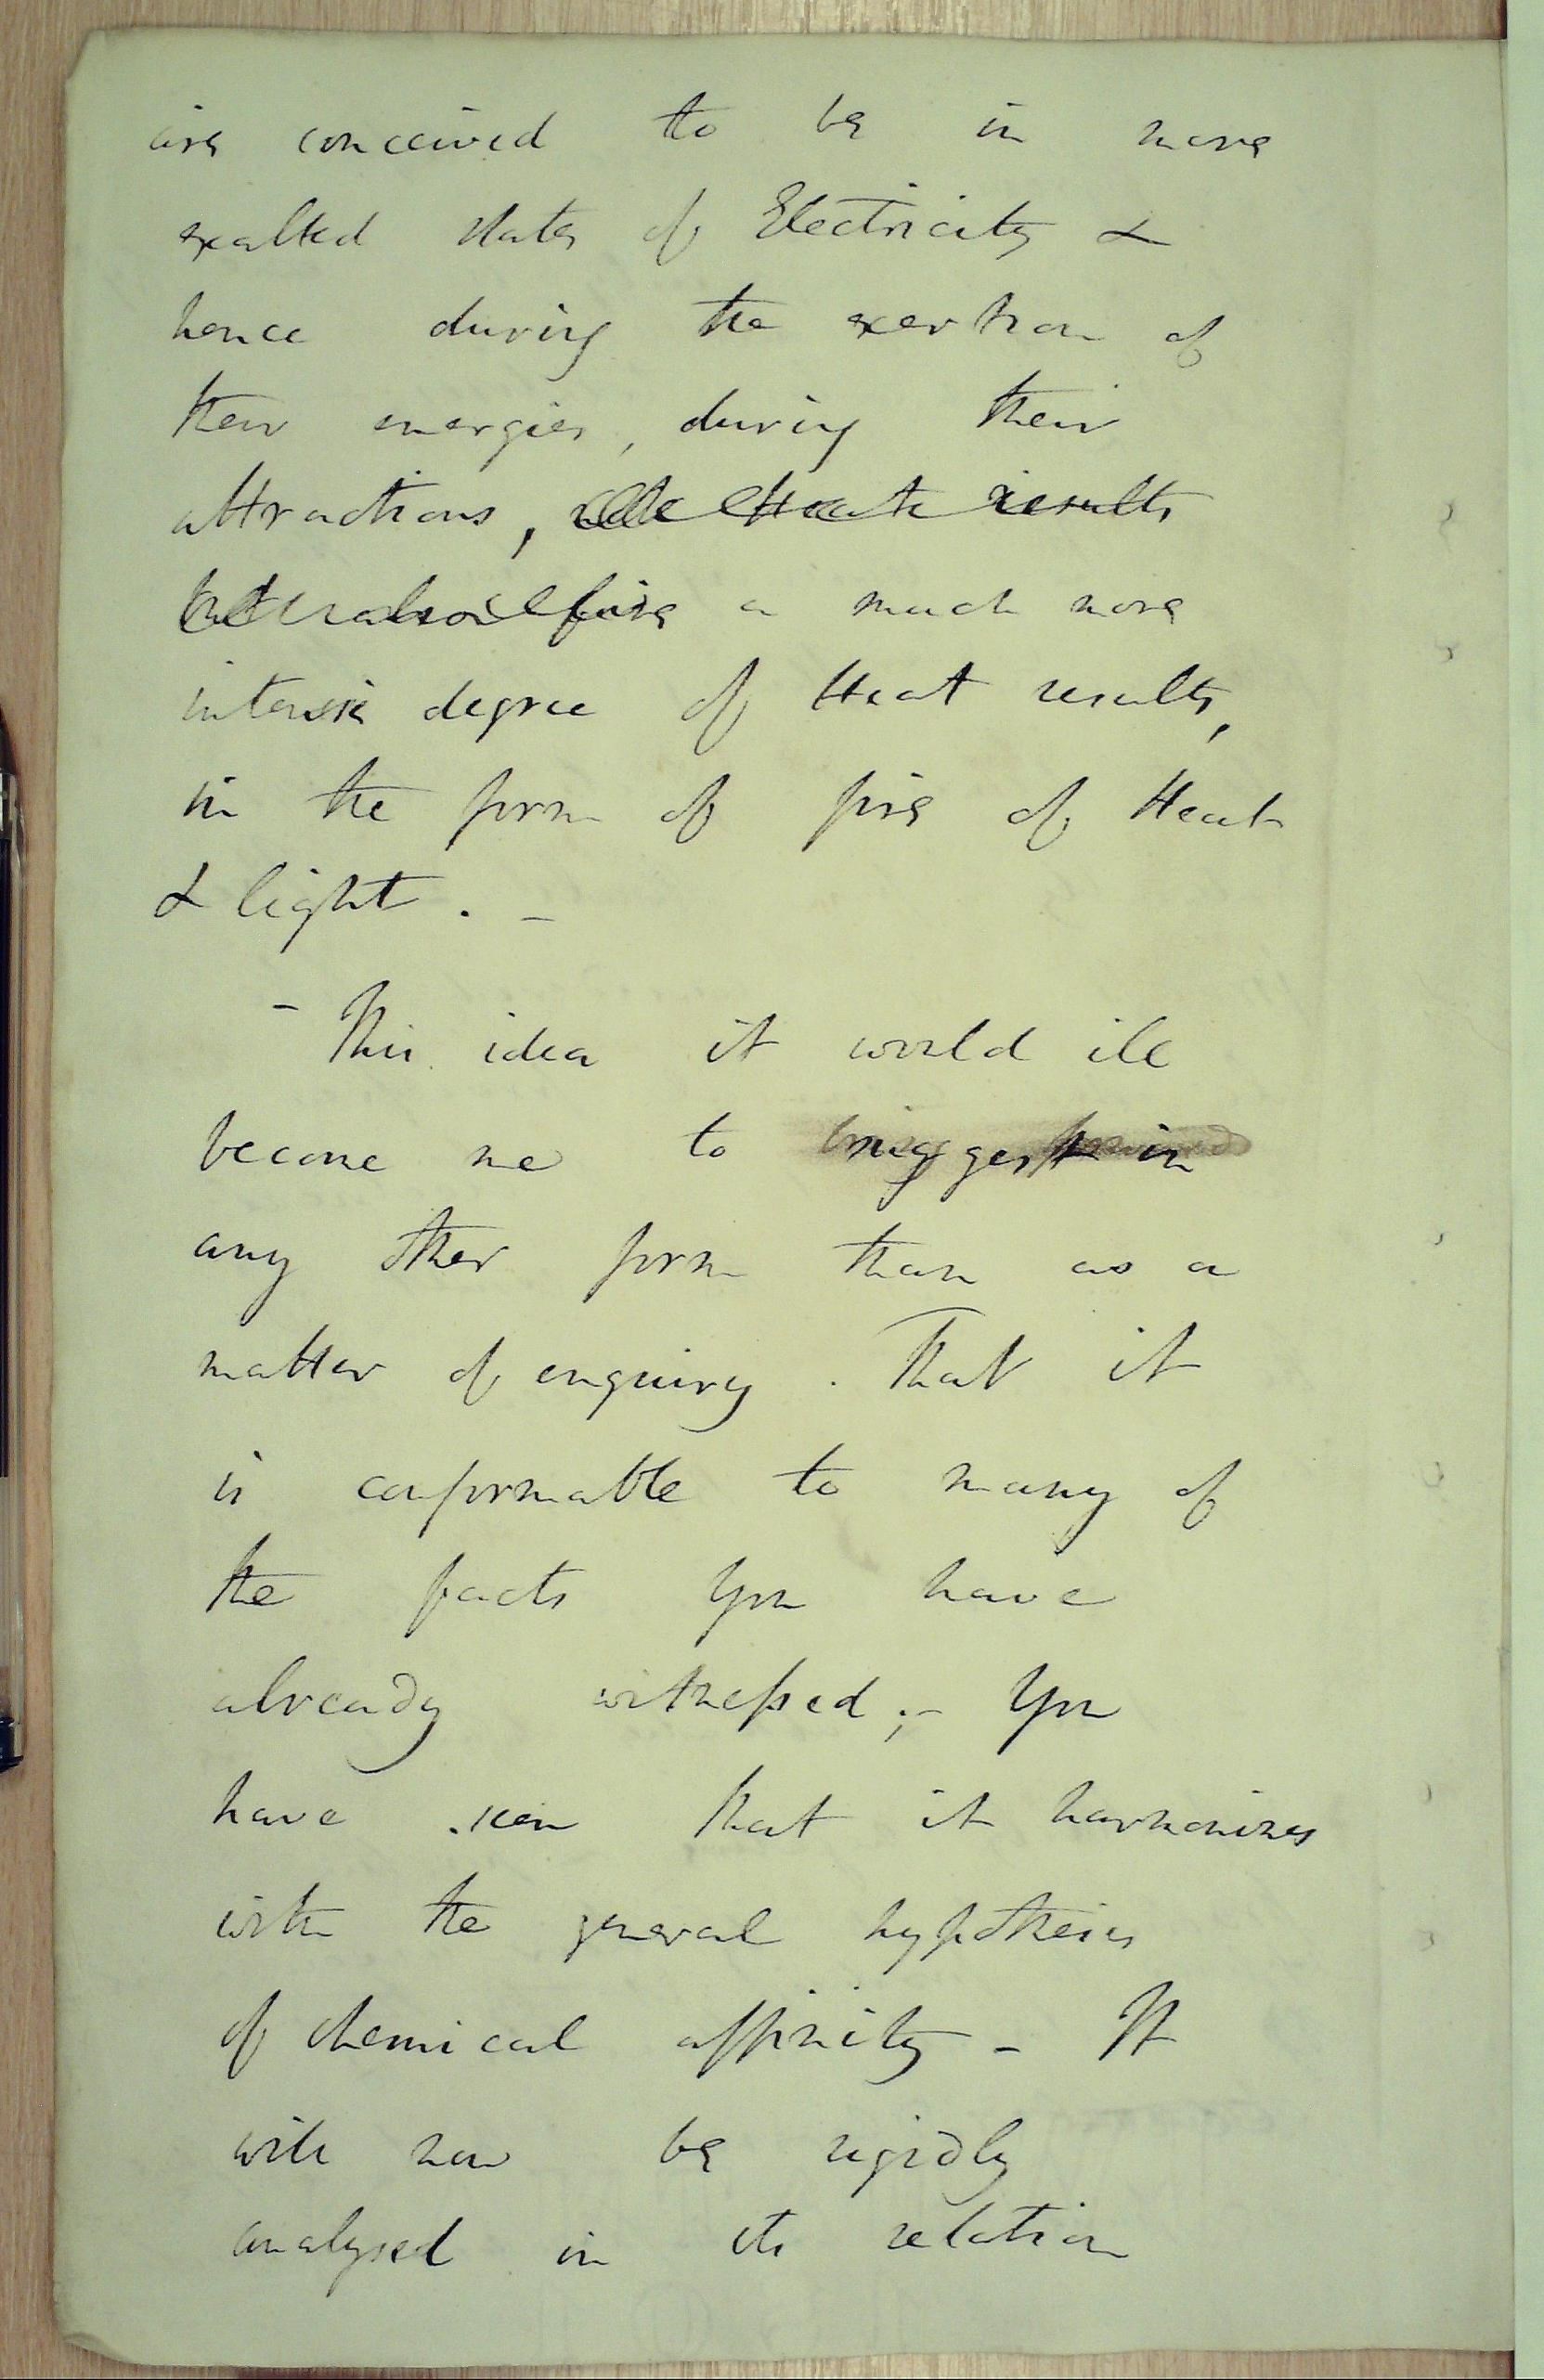 are conceived to be in more
exalted state of Electricity &
hence during the exertion of
their energies, during their
attractions, Heat results
but also fire a much more
intense degree of Heat results,
in the form of fire of Heat
& light. -
- This idea it would ill
become me to suggest in
any other form than as a
matter of enquiry. That it
is conformable to many of
the facts you have
already witnessed; - You
have seen that it harmonizes
with the general hypothesis
of chemical affinity - It
will now be rigidly
analysed in its relation